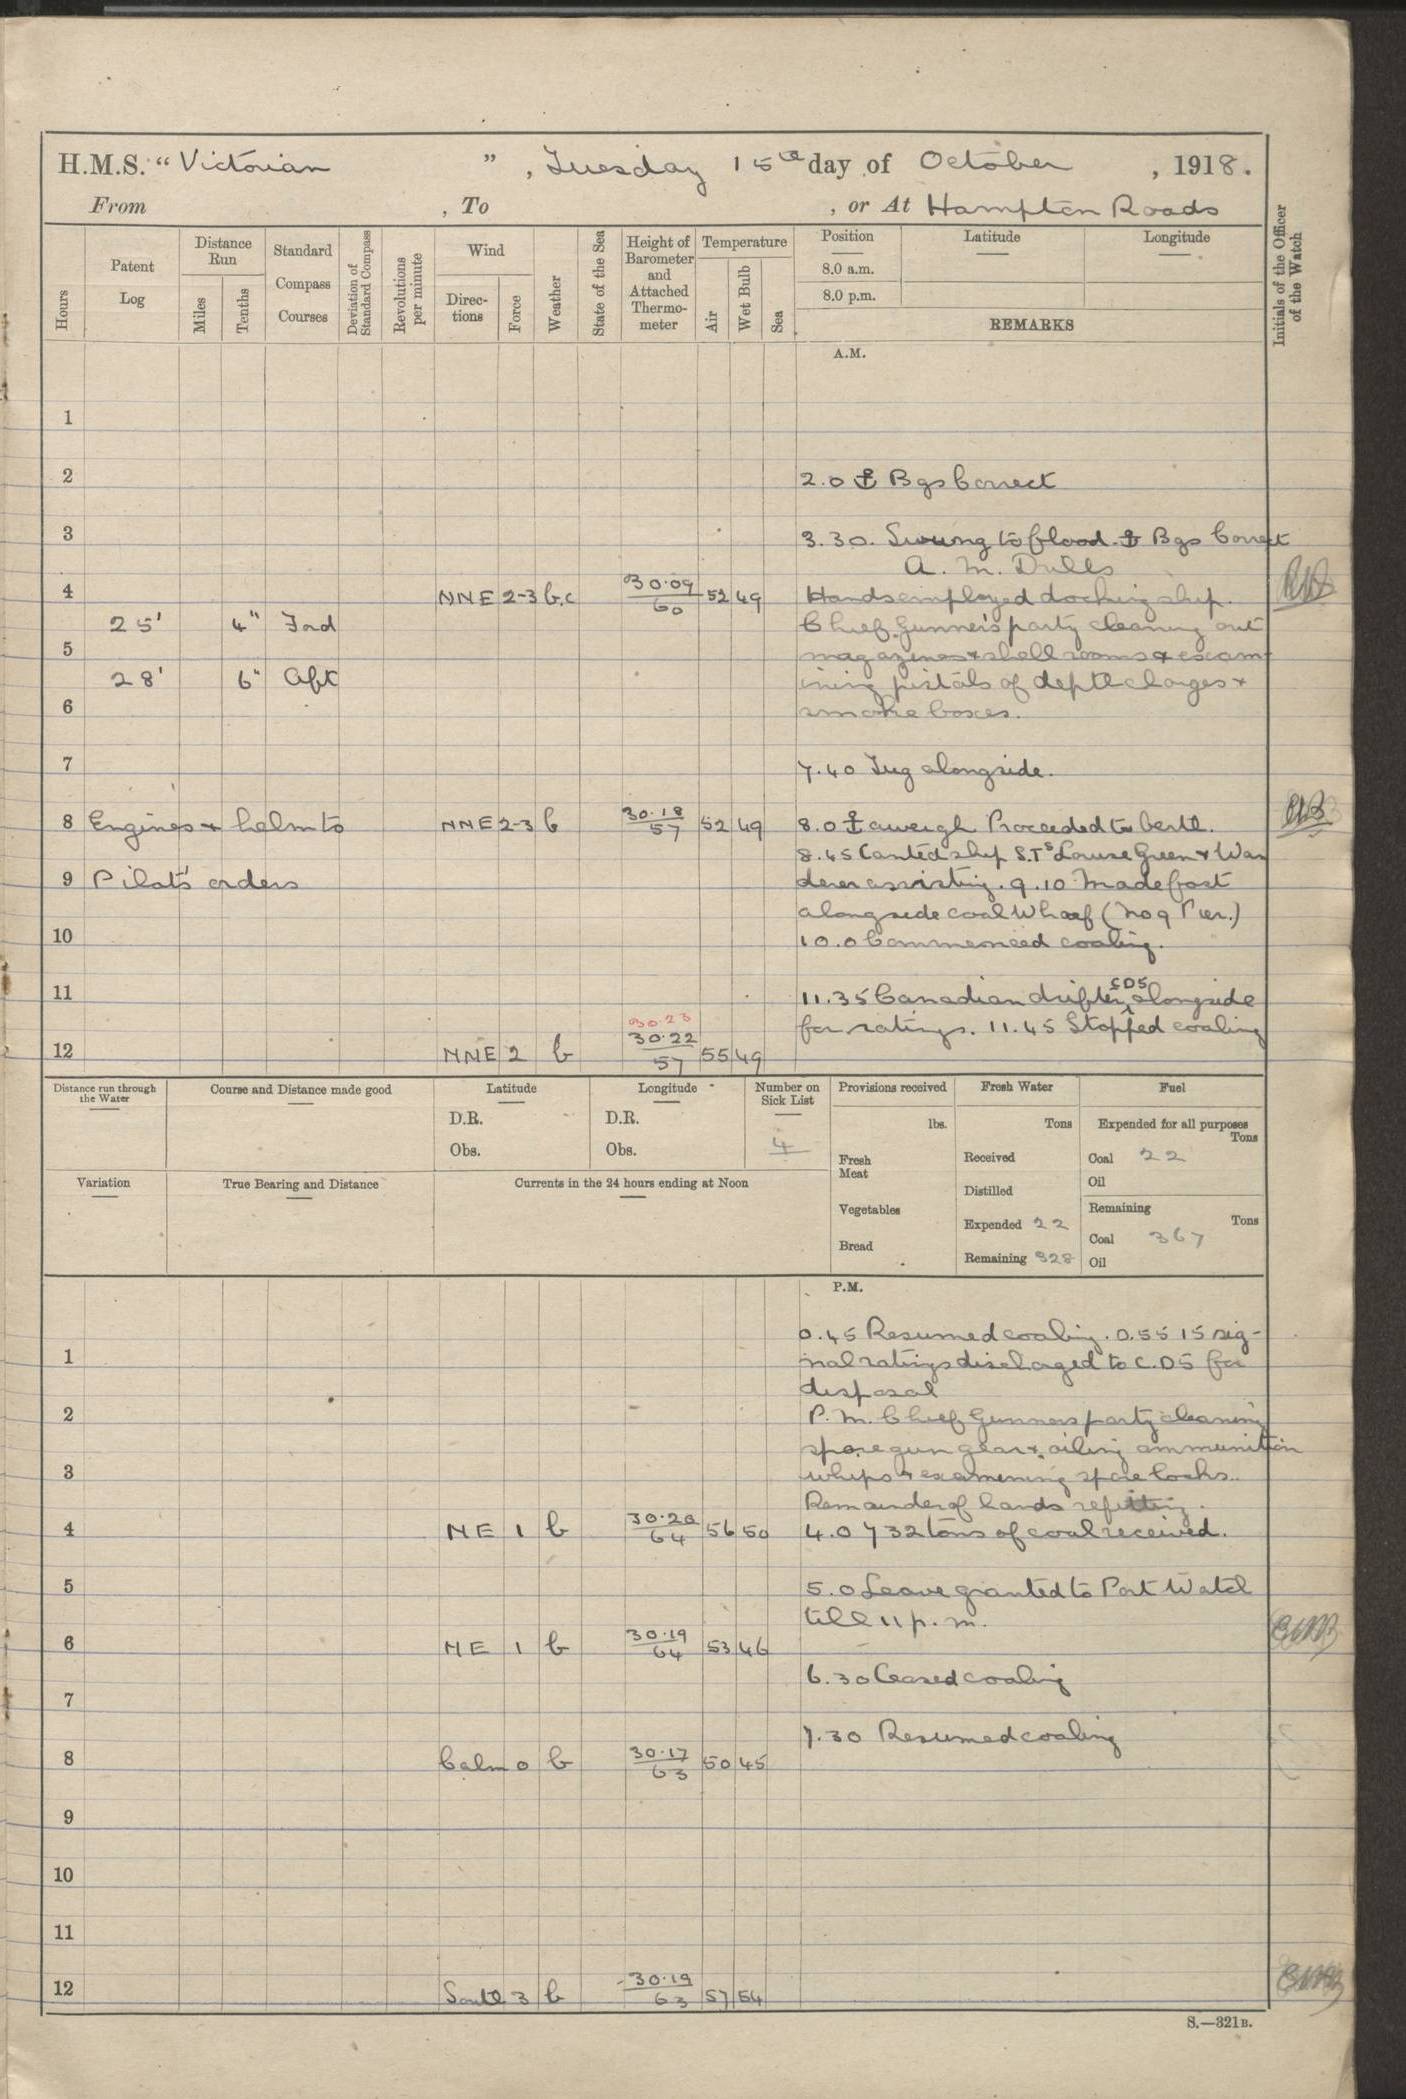 H.M.S. "Victorian ", Tuesday 15th day of October, 1918.
From , To , or At Hampton Roads
Hours
Patent Log
Distance Run
Miles
Tenths
Standard Compass Courses
Deviation of Standard Compass
Revolutions per minute
Wind
Directions
Force
Weather
State of the Sea
Height of Barometer and Attached Thermometer
Temperature
Air
Wet Bulb
Sea
Position
Latitude
Longitude
8.0 a.m.
8.0 p.m.
REMARKS
Initials of the Officer of the Watch
A.M.
1
2 2.0 ⚓ Bgs Correct
3 3.30. Swung to flood. ⚓ Bgs Correct
A. M. Drills
4 NNE 2-3 b.c 30.09 60 52 49 Hands employed docking ship.
25' 4" Ford Chief Gunner's party cleaning out
5 magazines & shell rooms & exam-
28' 6" Aft ining pistols of depth charges &
6 smoke boxes.
7 7.40 Tug alongside.
8 Engines & helm to NNE 2-3 b 30.18 57 52 49 8.0 ⚓ aweigh Proceeded to berth.
8.45 Canted ship S.Ts Louise Green & Wan
9 Pilots orders derer assisting. 9.10 Made fast
alongside coal Wharf (No 9 Pier.)
10 10.0 Commenced coaling.
11 11.35 Canadian drifter CD5 alongside
30.23 for ratings. 11.45 Stopped coaling
12 NNE 2 b 30.22 57 55 49
Distance run through the Water
Course and Distance made good
Latitude
Longitude
Number on Sick List
Provisions received
Fresh Water
Fuel
D.R.
D.R.
lbs.
Tons
Expended for all purposes Tons
Obs.
Obs.
4
Fresh Meat
Received
Coal 22
Oil
Variation
True Bearing and Distance
Currents in the 24 hours ending at Noon
Distilled
Vegetables
Expended 22
Remaining Tons
Coal 367
Bread
Remaining 328
Oil
P.M.
0.45 Resumed coaling. 0.55 15 sig-
1 nal ratings discharged to C.D5 for
disposal
2 P. M. Chief Gunners party cleaning
spare gun gear & oiling ammunition
3 whips & examining spare locks.
Remainder of hands refitting.
4 NE 1 b 30.20 64 56 50 4.0 732 tons of coal received.
5 5.0 Leave granted to Port Watch
till 11 p.m.
6 NE 1 b 30.19 64 53 46
6.30 Ceased coaling
7
7.30 Resumed coaling
8 Calm 0 b 30.17 63 50 45
9
10
11
12 South 3 b 30.19 63 57 54
S.—321B.